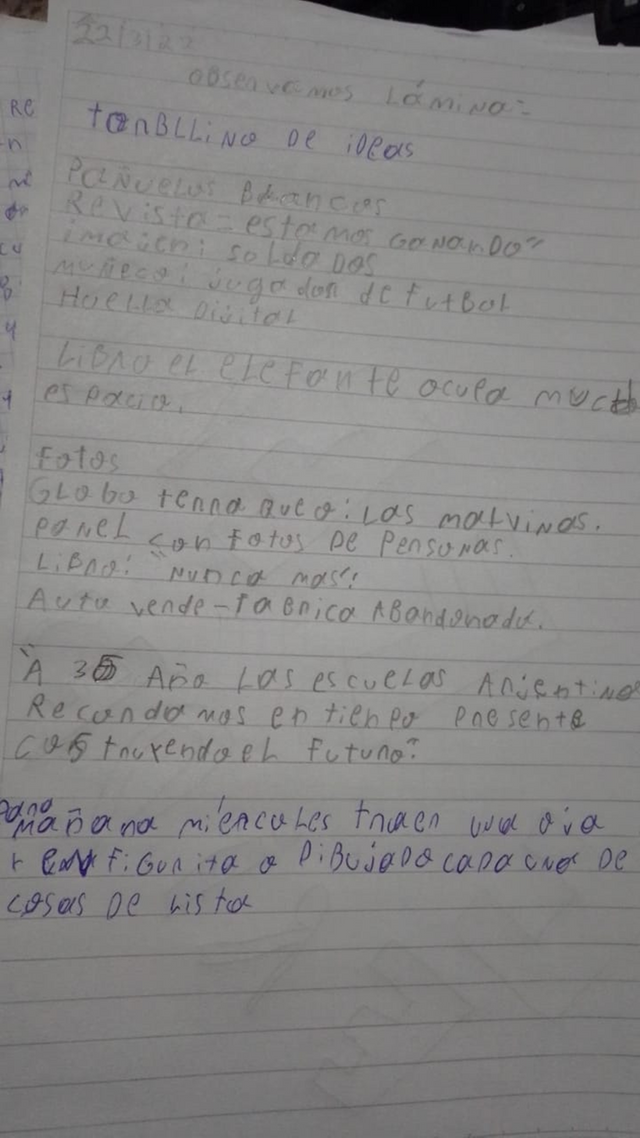 22/3/22
observamos Lámina:
tonBLLiNo De iDeas
Pañuelos BLancos
Revista= estamos GaNaNDo"
imaJen: soLDaDos
muñeco: jugador de futboL
HueLLa DiJitaL
LiBro eL eLeFante ocupa much
espacio.
Fotos
GLobo terraqueo: Las maLvinas.
paneL con fotos De personas.
LiBro: "Nunca mas":
Auto verde-faBrica ABandonada.
"A 35 Año Las escueLas ArJentinas
Recordamos en tienpo presente
costruyendo eL futuro"
para
mañana miercoLes traer una oja
r con FiGurita o DiBujado cada una De
cosas De Lista